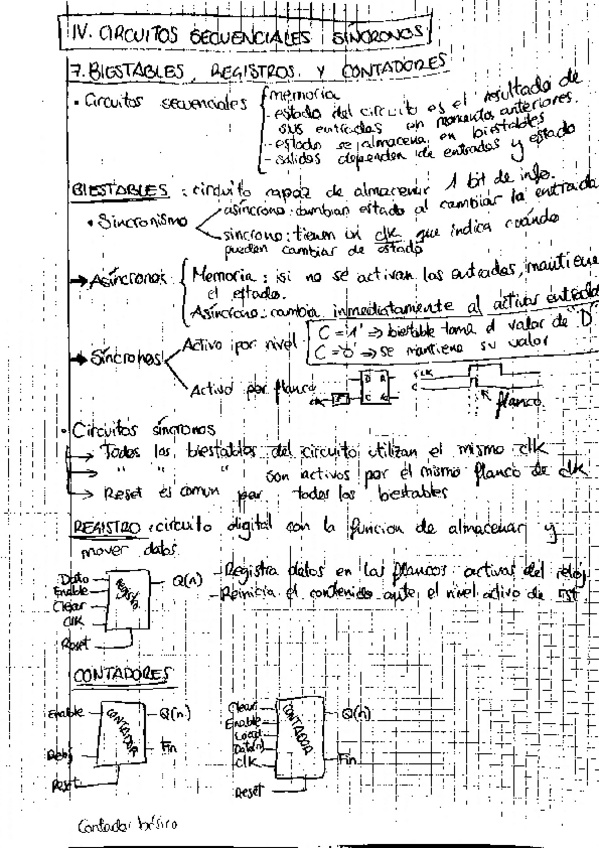 IV. CIRCUITOS SECUENCIALES SÍNCRONOS
7. BIESTABLES, REGISTROS Y CONTADORES
• Circuitos secuenciales
memoria
- estado del circuito es el resultado de
sus entradas en momentos anteriores.
- estado se almacena en biestables
- salidas dependen de entradas y estado
BIESTABLES: circuito capaz de almacenar 1 bit de info.
• Sincronismo
asíncrono: cambian estado al cambiar la entrada
síncrono: tienen un clk que indica cuándo
pueden cambiar de estado
→ Asíncronos
Memoria: si no se activan las entradas, mantiene
el estado.
Asíncrono: cambia inmediatamente al activar entrada
→ Síncronos
Activo por nivel
C='1' ⇒ biestable toma el valor de "D"
C='0' ⇒ se mantiene su valor
Activo por flanco
clk
D
C
CLK
C
flanco
• Circuitos síncronos
→ Todos los biestables del circuito utilizan el mismo clk
→ " " " son activos por el mismo flanco de clk
→ Reset es común para todos los biestables
REGISTRO: circuito digital con la función de almacenar y
mover datos.
Dato
Enable
Clear
Clk
Reset
Registro
Q(n)
- Registra datos en los flancos activos del reloj
- Reinicia el contenido ante el nivel activo de rst
CONTADORES
Enable
Reloj
Reset
CONTADOR
Q(n)
Fin
Clear
Enable
Load
Dato(n)
Clk
Reset
CONTADOR
Q(n)
Fin
Contador básico